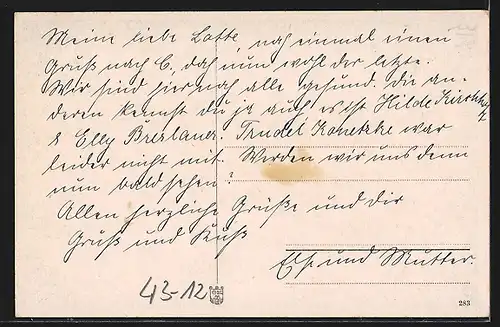 Meine liebe Lotte, noch einmal einen
Gruß nach C, doch nun wohl der letzte.
Wir sind hier noch alle gesund. die an-
deren kennst du ja auch, es ist Hilde
& Elly Breslauer. Trudel Konetzke war
leider nicht mit. Werden wir uns denn
nun bald sehen?
Allen herzliche Grüße und dir
Gruß und Kuß
Else und Mutter.
43-12
283